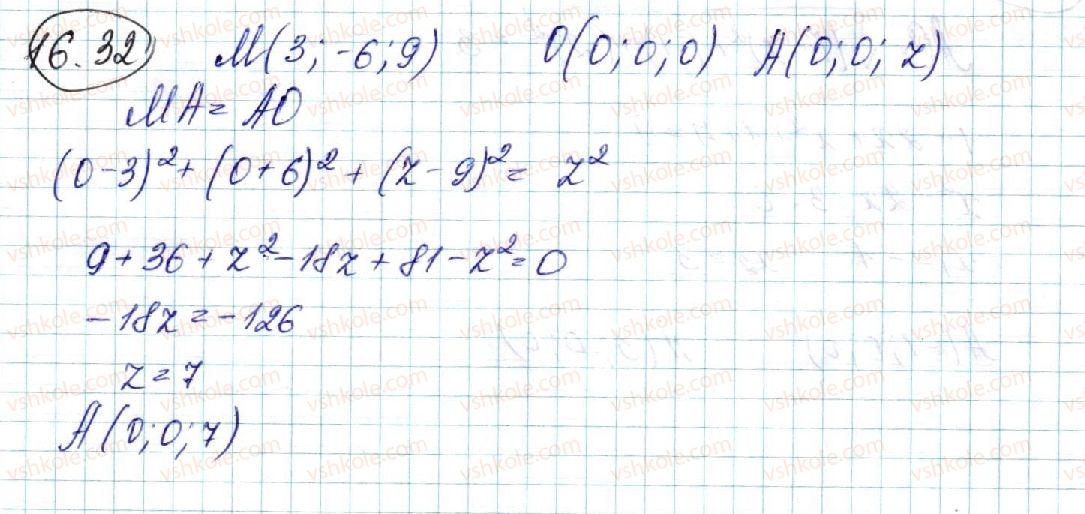 16.32 M(3; -6; 9) O(0; 0; 0) A(0; 0; z)
MA = AO
(0-3)² + (0+6)² + (z-9)² = z²
9 + 36 + z² - 18z + 81 - z² = 0
-18z = -126
z = 7
A(0; 0; 7)